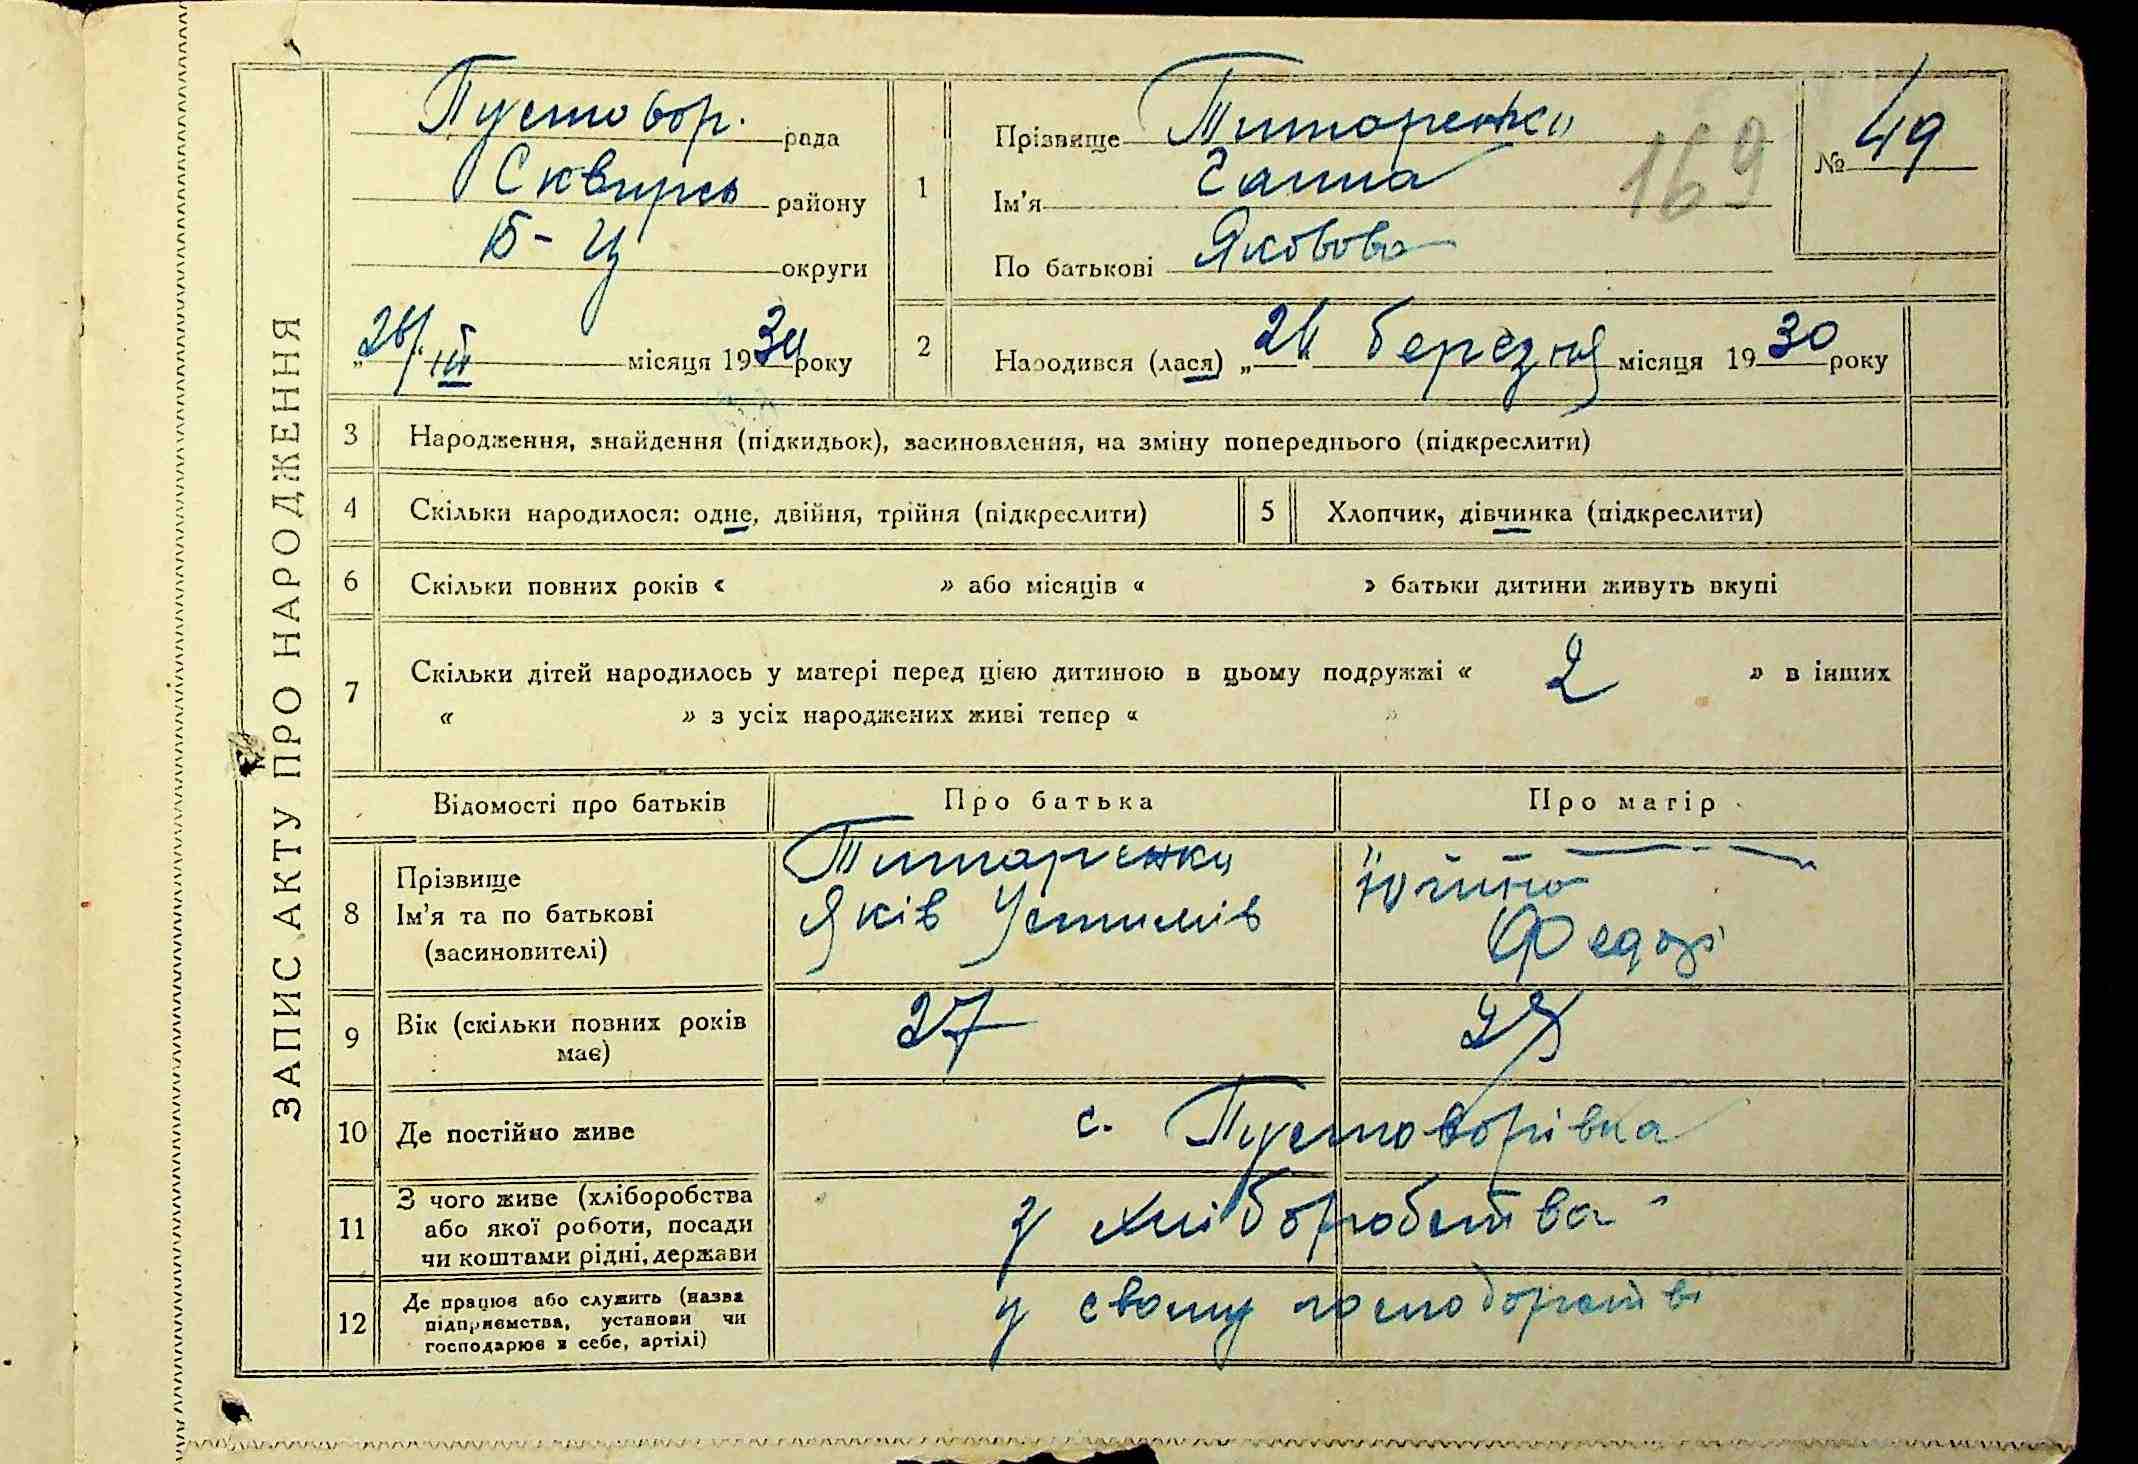 ЗАПИС АКТУ ПРО НАРОДЖЕННЯ
Пустовор. рада
Сквирсь району
Б-Ц округи
„26/III“ місяця 1930 року
1
Прізвище Титаренко
Ім'я Ганна
По батькові Яковова
169
№ 49
2
Народився (лася) „ березня місяця 1930 року
3 Народження, знайдення (підкидьок), засиновлення, на зміну попереднього (підкреслити)
4 Скільки народилося: одне, двійня, трійня (підкреслити)
5 Хлопчик, дівчинка (підкреслити)
6 Скільки повних років « » або місяців « » батьки дитини живуть вкупі
7 Скільки дітей народилось у матері перед цією дитиною в цьому подружжі « 2 » в інших
« » з усіх народжених живі тепер « »
Відомості про батьків
Про батька
Про матір
8
Прізвище
Ім'я та по батькові
(засиновителі)
Титаренко
Яків Устимів
Федозі
9
Вік (скільки повних років
має)
27
10 Де постійно живе
с. Пустоворівка
11
З чого живе (хліборобства
або якої роботи, посади
чи коштами рідні, держави
з хліборобства
12
Де працює або служить (назва
підприємства, установи чи
господарює в себе, артілі)
у свому господарстві